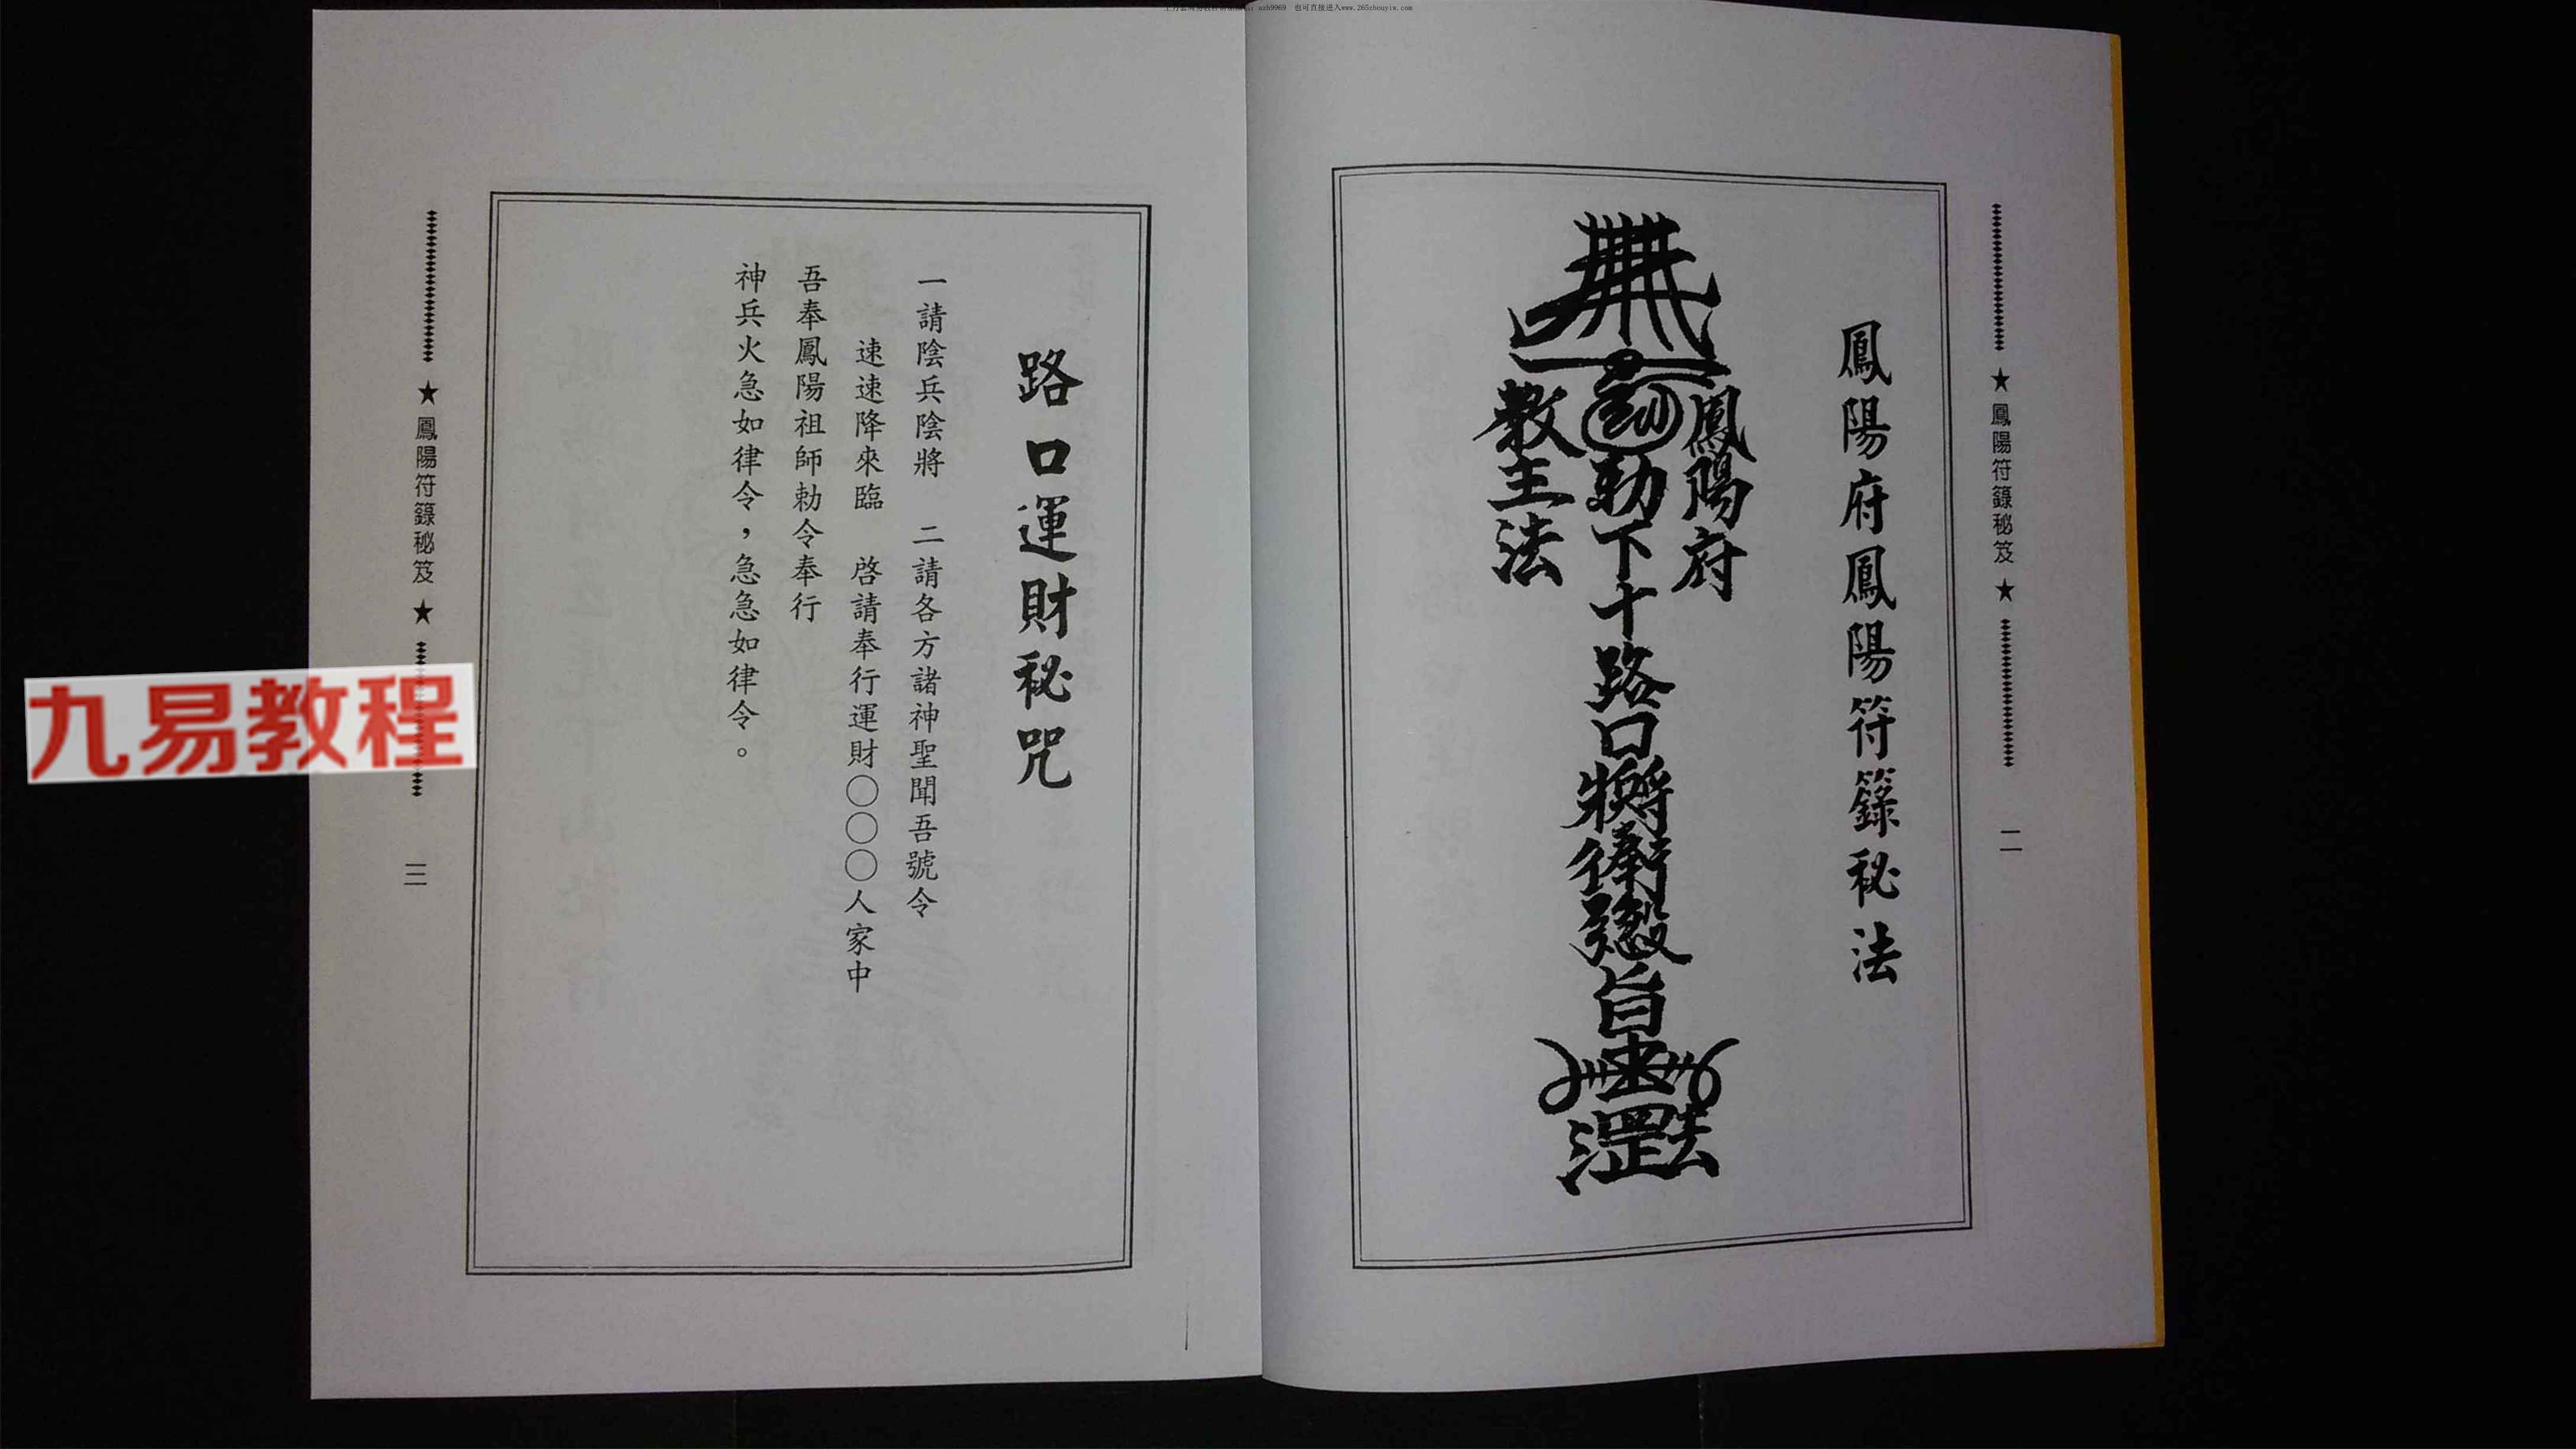 azh9969 也可直接进入www.265zhouyiw.com
★鳳陽符籙秘笈★
二
鳳陽府鳳陽符籙秘法
鳳陽府
勅下十路口
旨
教主法
路口運財秘咒
一請陰兵陰將 二請各方諸神聖聞吾號令
速速降來臨 啓請奉行運財〇〇〇人家中
吾奉鳳陽祖師勅令奉行
神兵火急如律令，急急如律令。
★鳳陽符籙秘笈★
三
九易教程